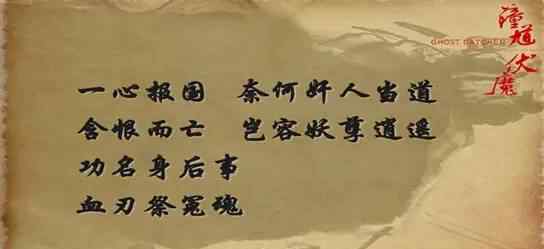 GHOST CATCHER
一心报国 奈何奸人当道
含恨而亡 岂容妖孽逍遥
功名身后事
血刃祭冤魂